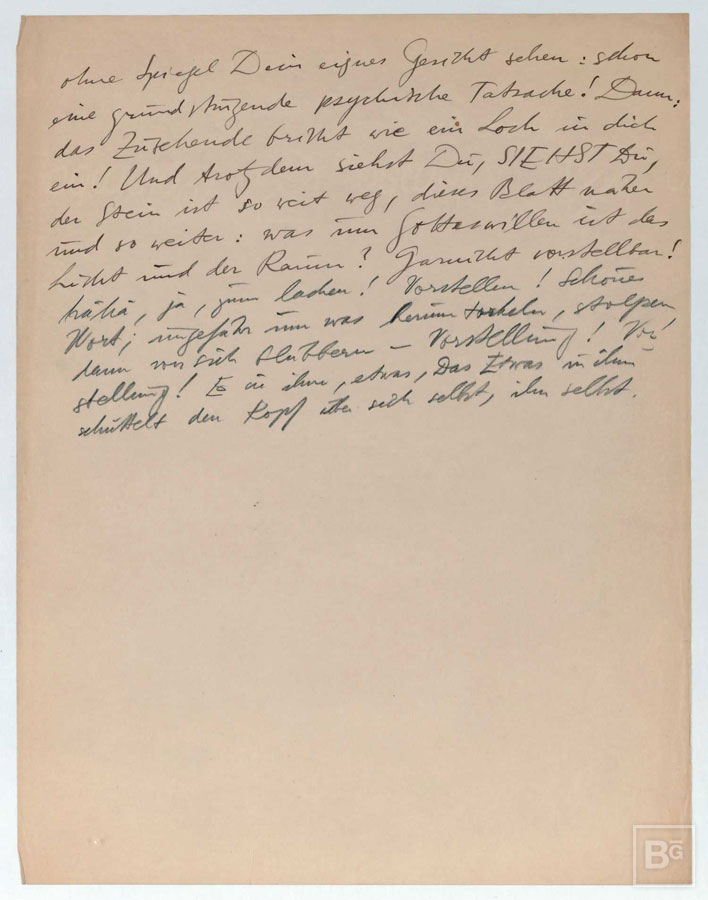 ohne Spiegel Dein eignes Gesicht sehen: schon
eine grundstürzende psychische Tatsache! Dann:
das Zusehende bricht wie ein Loch in dich
ein! Und trotzdem siehst Du, SIEHST Du,
der Stein ist so weit weg, dieses Blatt näher
und so weiter: was um Gotteswillen ist das
Licht und der Raum? Garnicht vorstellbar!
häha, ja, zum lachen! Vorstellen! Schönes
Wort; ungefähr um was herum torkeln, stolpern
dann vor sich blubbern – Vorstellung! Vor!
stellung! Es in ihm, etwas, Das Etwas in ihm
schüttelt den Kopf über sich selbst, ihn selbst.
BG